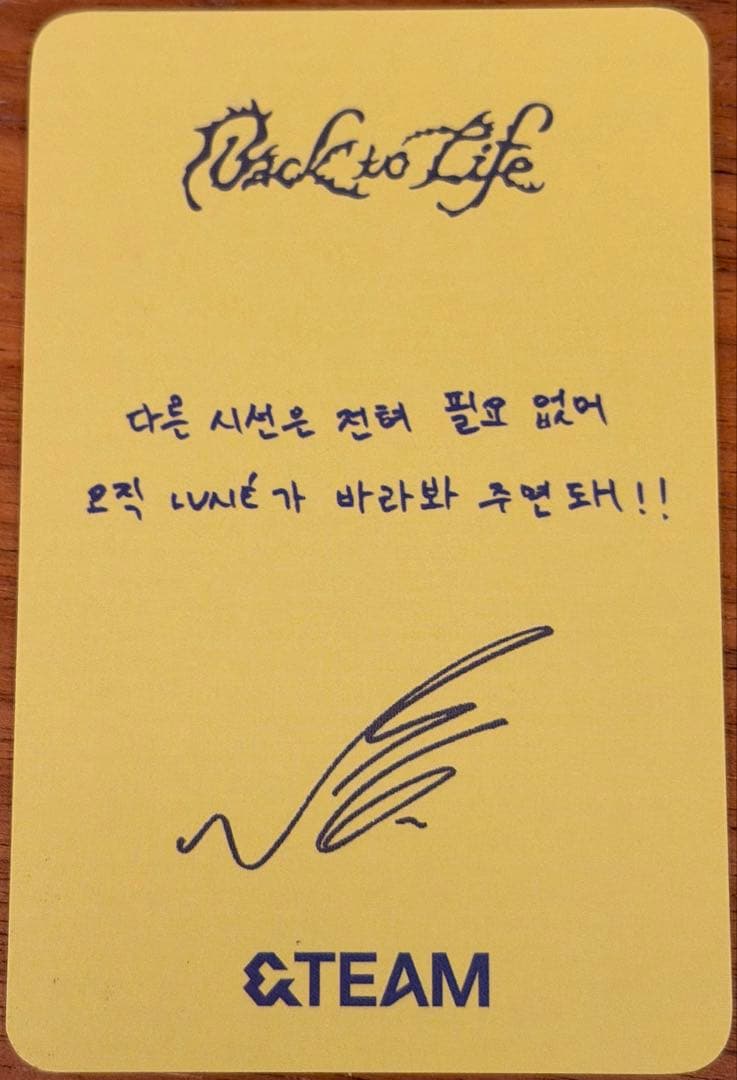 Back to Life
다른 시선은 전혀 필요 없어
오직 LUNÉ가 바라봐 주면 돼!!
&TEAM